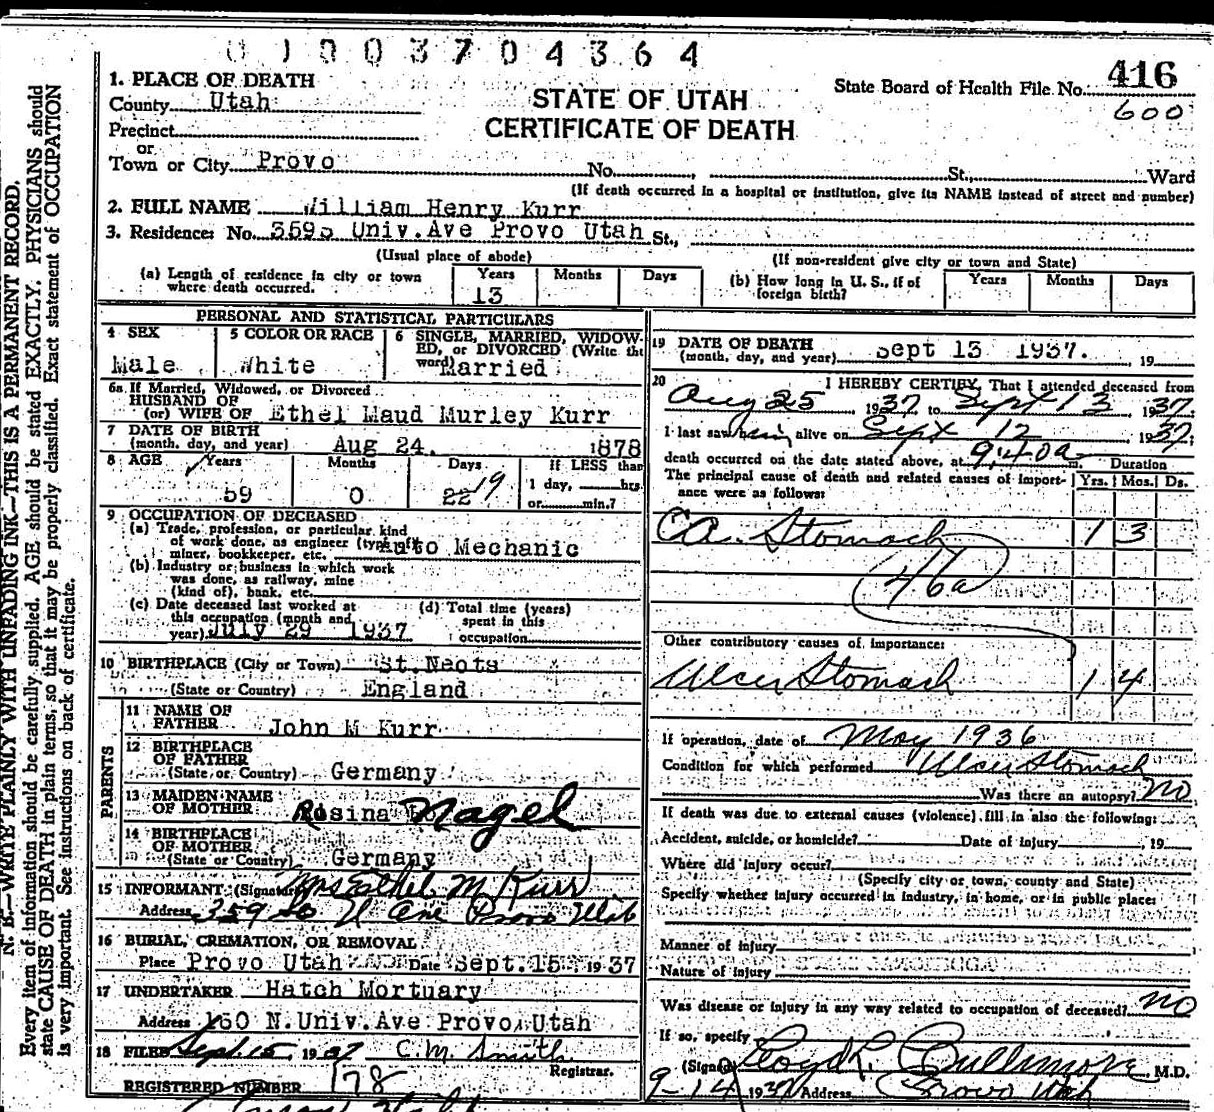 01003704364
1. PLACE OF DEATH
County Utah
Precinct
or
Town or City Provo No. , St., Ward
STATE OF UTAH
CERTIFICATE OF DEATH
State Board of Health File No. 416
600
(If death occurred in a hospital or institution, give its NAME instead of street and number)
2. FULL NAME William Henry Kurr
3. Residence: No. 359S Univ.Ave Provo Utah St.,
(Usual place of abode) (If non-resident give city or town and State)
(a) Length of residence in city or town where death occurred. Years 13 Months Days
(b) How long in U. S., if of foreign birth? Years Months Days
PERSONAL AND STATISTICAL PARTICULARS
4 SEX Male
5 COLOR OR RACE White
6 SINGLE, MARRIED, WIDOWED, or DIVORCED (Write the word) Married
6a If Married, Widowed, or Divorced
HUSBAND OF
(or) WIFE OF Ethel Maud Murley Kurr
7 DATE OF BIRTH
(month, day, and year) Aug 24. 1878
8 AGE Years Months Days If LESS than
59 0 22 19 1 day, hrs.
or min.?
9 OCCUPATION OF DECEASED
(a) Trade, profession, or particular kind
of work done, as engineer (type of)
miner, bookkeeper, etc. Auto Mechanic
(b) Industry or business in which work
was done, as railway, mine
(kind of), bank, etc.
(c) Date deceased last worked at
this occupation (month and
year) July 29 1937
(d) Total time (years)
spent in this
occupation
10 BIRTHPLACE (City or Town) St.Neots
(State or Country) England
PARENTS
11 NAME OF
FATHER John M Kurr
12 BIRTHPLACE
OF FATHER
(State or Country) Germany
13 MAIDEN NAME
OF MOTHER Rosina Nagel
14 BIRTHPLACE
OF MOTHER
(State or Country) Germany
15 INFORMANT (Signature) Mrs Ethel M Kurr
Address 359 So U Ave Provo Utah
16 BURIAL, CREMATION, OR REMOVAL
Place Provo Utah Date Sept.15 1937
17 UNDERTAKER Hatch Mortuary
Address 160 N.Univ.Ave Provo, Utah
18 FILED Sept. 15, 1937 C.M. Smith
Registrar.
REGISTERED NUMBER 178
19 DATE OF DEATH
(month, day, and year) Sept 13 1937. , 19
20 I HEREBY CERTIFY, That I attended deceased from
Aug 25, 1937, to Sept 13 1937.
I last saw him alive on Sept 12, 1937;
death occurred on the date stated above, at 9:40 a m. Duration
The principal cause of death and related causes of importance were as follows: Yrs. Mos. Ds.
CA. Stomach 1 3
46a
Other contributory causes of importance:
Ulcer Stomach 1 4
If operation, date of May 1936
Condition for which performed Ulcer Stomach
Was there an autopsy? NO
If death was due to external causes (violence) fill in also the following:
Accident, suicide, or homicide? Date of injury , 19
Where did injury occur?
(Specify city or town, county and State)
Specify whether injury occurred in industry, in home, or in public place:
Manner of injury
Nature of injury
Was disease or injury in any way related to occupation of deceased? NO
If so, specify
(Signed) Lloyd L. Cullimore, M.D.
9-14 1937 Address Provo Utah
N. B.—WRITE PLAINLY WITH UNFADING INK—THIS IS A PERMANENT RECORD.
Every item of information should be carefully supplied. AGE should be stated EXACTLY. PHYSICIANS should
state CAUSE OF DEATH in plain terms, so that it may be properly classified. Exact statement of OCCUPATION
is very important. See instructions on back of certificate.